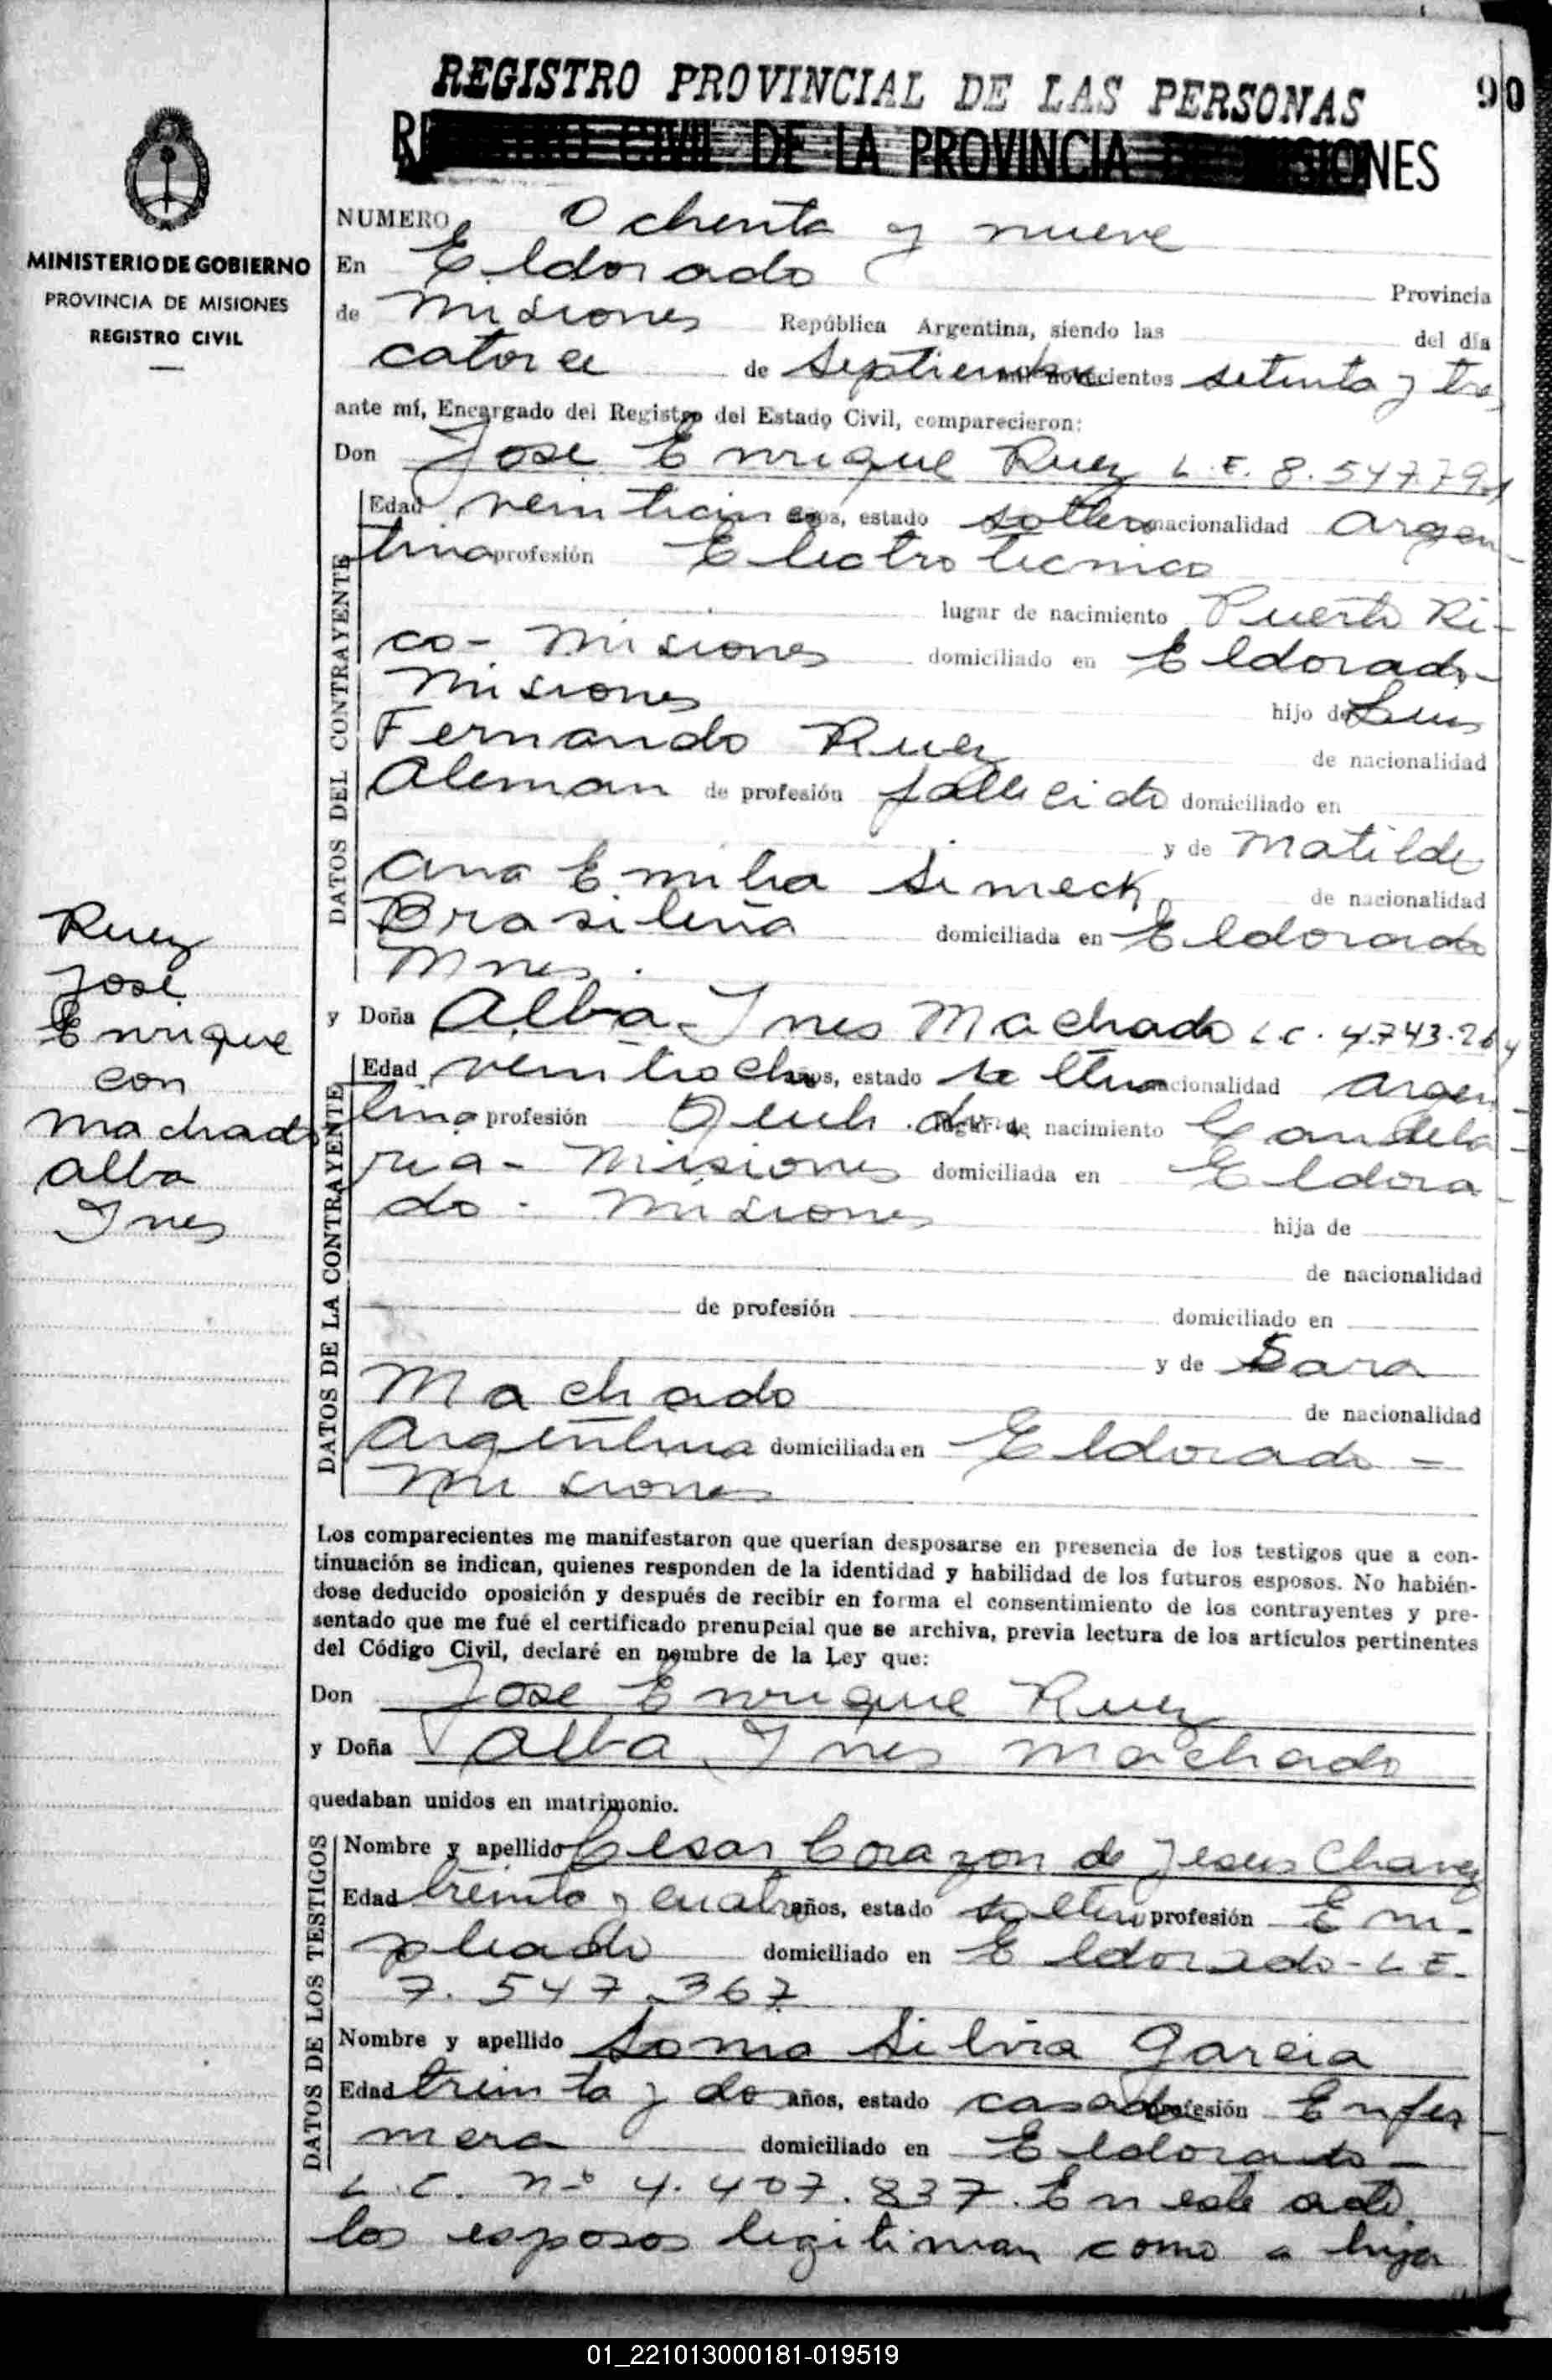 REGISTRO PROVINCIAL DE LAS PERSONAS
90
REGISTRO CIVIL DE LA PROVINCIA DE MISIONES
MINISTERIO DE GOBIERNO
PROVINCIA DE MISIONES
REGISTRO CIVIL
NUMERO Ochenta y nueve
En Eldorado Provincia
de Misiones República Argentina, siendo las del día
catorce de Septiembre mil novecientos setenta y tres
ante mí, Encargado del Registro del Estado Civil, comparecieron:
Don Jose Enrique Ruez L.E. 8.547.791
Edad veinticinco años, estado soltero nacionalidad Argen-
tina profesión Electrotecnico
lugar de nacimiento Puerto Ri-
co- Misiones domiciliado en Eldorado-
Misiones hijo de Luis
Fernando Ruez de nacionalidad
Aleman de profesión fallecido domiciliado en
y de Matilde
Ana Emilia Simeck de nacionalidad
Brasileña domiciliada en Eldorado
Mnes.
DATOS DEL CONTRAYENTE
Ruez
José
Enrique
con
Machado
Alba
Ines
y Doña Alba Ines Machado L.C. 4.743.264
Edad veintiocho años, estado soltera nacionalidad Argen-
tina profesión Queh. dom. lugar de nacimiento Candela-
ria- Misiones domiciliada en Eldora-
do- Misiones hija de
de nacionalidad
de profesión domiciliado en
y de Sara
Machado de nacionalidad
Argentina domiciliada en Eldorado-
Misiones
DATOS DE LA CONTRAYENTE
Los comparecientes me manifestaron que querían desposarse en presencia de los testigos que a con-
tinuación se indican, quienes responden de la identidad y habilidad de los futuros esposos. No habién-
dose deducido oposición y después de recibir en forma el consentimiento de los contrayentes y pre-
sentado que me fué el certificado prenupcial que se archiva, previa lectura de los artículos pertinentes
del Código Civil, declaré en nombre de la Ley que:
Don Jose Enrique Ruez
y Doña Alba Ines Machado
quedaban unidos en matrimonio.
Nombre y apellido Cesar Corazon de Jesus Chavez
Edad treinta y cuatro años, estado soltero profesión Em-
pleado domiciliado en Eldorado- L.E.
7.547.367
Nombre y apellido Sonia Silvia Garcia
Edad treinta y dos años, estado casada profesión Enfer-
mera domiciliado en Eldorado-
L.C. nº 4.407.837. En este acto
los esposos legitiman como a hija
DATOS DE LOS TESTIGOS
01_221013000181-019519